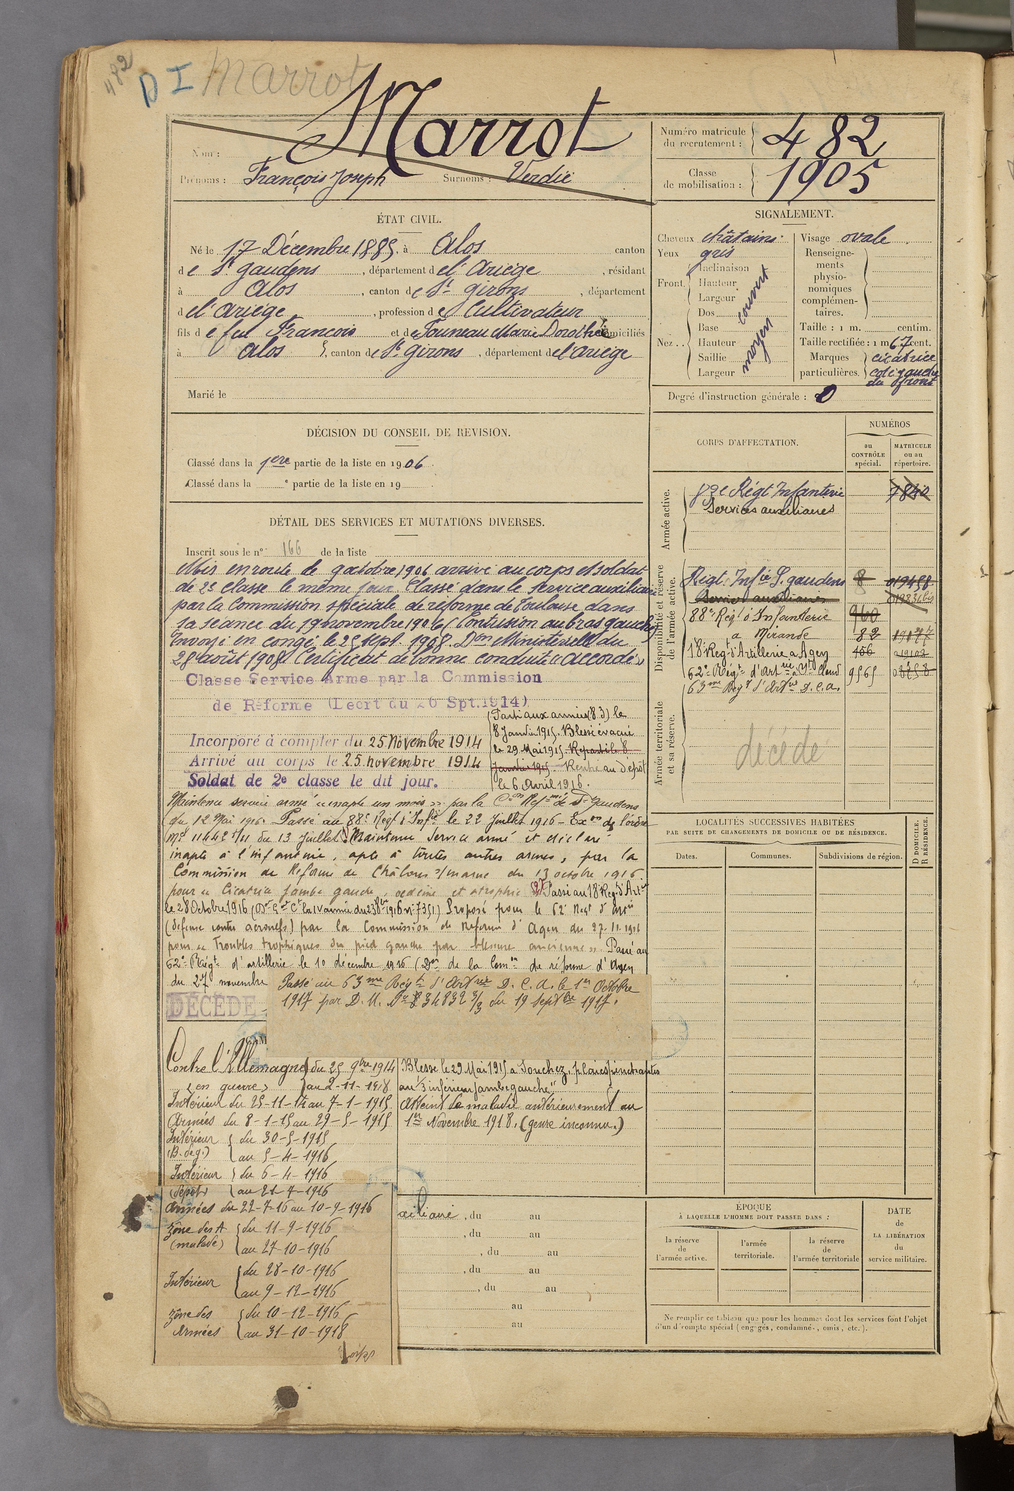 482
D I Marrot
Marrot
Nom :
Prénoms : François Joseph Surnoms : Verdié
Numéro matricule du recrutement : 482
Classe de mobilisation : 1905
ÉTAT CIVIL.
Né le 17 Décembre 1885, à Alos canton
de St gaudens, département de l'Ariège, résidant
à Alos, canton de St girons, département
d l'ariège, profession de Cultivateur
fils de feu François et de Touneau Marie Dorothée domiciliés
à Alos, canton de St Girons, département de l'ariège
Marié le
SIGNALEMENT.
Cheveux châtains
Yeux gris
Front Inclinaison
Hauteur
Largeur
couvert
Nez Dos
Base
Hauteur
Saillie
Largeur
moyen
Visage ovale
Renseignements physionomiques complémentaires.
Taille : 1 m. centim.
Taille rectifiée : 1 m 67 cent.
Marques particulières. cicatrice
coté gauche
du front
Degré d'instruction générale : 0
DÉCISION DU CONSEIL DE REVISION.
Classé dans la 1ere partie de la liste en 1906
Classé dans la e partie de la liste en 19
DÉTAIL DES SERVICES ET MUTATIONS DIVERSES.
Inscrit sous le n° 166 de la liste
Mis en route le 9 octobre 1906 arrivé au corps et soldat
de 2e classe le même jour. Classé dans le service auxiliaire
par la Commission spéciale de réforme de Toulouse dans
sa séance du 19 novembre 1906, Contusion au bras gauche
Envoyé en congé le 25 Sept. 1908. Don Ministérielle du
28 août 1908. Certificat de bonne conduite "Accordé"
Classe Service Arme par la Commission
de Réforme (Decrt du 26 Spt.1914)
Incorporé à compter du 25 Novembre 1914
Arrivé au corps le 25 novembre 1914
Soldat de 2e classe le dit jour.
Parti aux armées (83) le
8 Janvier 1915. Blessé évacué
le 29 Mai 1915. Reparti le 8
Janvier 1915. Rentré au dépôt
le 6 Avril 1916.
Maintenu service armé "inapte un mois" par la Con Refme de St Gaudens
du 12 Mai 1916. Passé au 88e Regt d'Infie le 22 Juillet 1916 - Exon de l'ordre
Mel 11442 1/11 du 13 Juillet. Maintenu Service armé et déclaré
inapte à l'infanterie, apte à toutes autres armes, par la
Commission de Réforme de Châlons s/marne du 13 octobre 1916
pour "Cicatrice jambe gauche, oedème et atrophie" Passé au 18 Regt d'Artie
le 28 Octobre 1916 Proposé pour le 62e Regt d'Artie
(défense contre aéronefs) par la Commission de Réforme d'Agen du 27.11.1916
pour "troubles trophiques du pied gauche par blessure ancienne". Passé au
62e Régt d'artillerie le 10 décembre 1916 (Don de la Comon de réforme d'Agen
du 27 novembre
Passé au 63me Régt d'Artrie D.C.A. le 1er Octobre
1917 par D.M. No 34832 3/3 du 19 Septbre 1917.
DÉCÉDÉ
Contre l'Allemagne du 25 9bre 1914
(en guerre) au 2-11-1918
Intérieur du 25-11-14 au 7-1-1915
Armées du 8-1-15 au 29-5-1915
Intérieur du 30-5-1915
(B. de g.) au 5-4-1916
Intérieur du 6-4-1916
(dépôt) au 21-7-1916
Armées du 22-7-16 au 10-9-1916
zone des A du 11-9-1916
(malade) au 27-10-1916
Intérieur du 28-10-1916
au 9-12-1916
zone des du 10-12-1916
Armées au 31-10-1918
Blessé le 29 Mai 1915 à Souchez, "plaies pénétrantes
au 1/3 inférieur jambe gauche"
Atteint de maladie antérieurement au
1er Novembre 1918. (genre inconnu.)
xiliaire, du au
, du au
, du au
, du au
, du au
au
au
CORPS D'AFFECTATION.
NUMÉROS
au CONTRÔLE spécial.
MATRICULE ou au répertoire.
Armée active.
Régt Infanterie 7840
Services auxiliaires
Disponibilité et réserve de l'armée active.
Régt Infie St gaudens 8 019458
Services auxiliaires
88e Regt d'Infanterie 960
à Mirande 82
18e Regt d'Artillerie à Agen 166
62e Régt d'Artrie à St Cloud 9565
63me Regt d'Artrie D.C.A.
Armée territoriale et sa réserve.
décédé
LOCALITÉS SUCCESSIVES HABITÉES
PAR SUITE DE CHANGEMENTS DE DOMICILE OU DE RÉSIDENCE.
Dates. Communes. Subdivisions de région. D DOMICILE. R RÉSIDENCE.
ÉPOQUE
À LAQUELLE L'HOMME DOIT PASSER DANS :
la réserve de l'armée active.
l'armée territoriale.
la réserve de l'armée territoriale
DATE de LA LIBÉRATION du service militaire.
Ne remplir ce tableau que pour les hommes dont les services font l'objet
d'un décompte spécial (engagés, condamnés, omis, etc.).